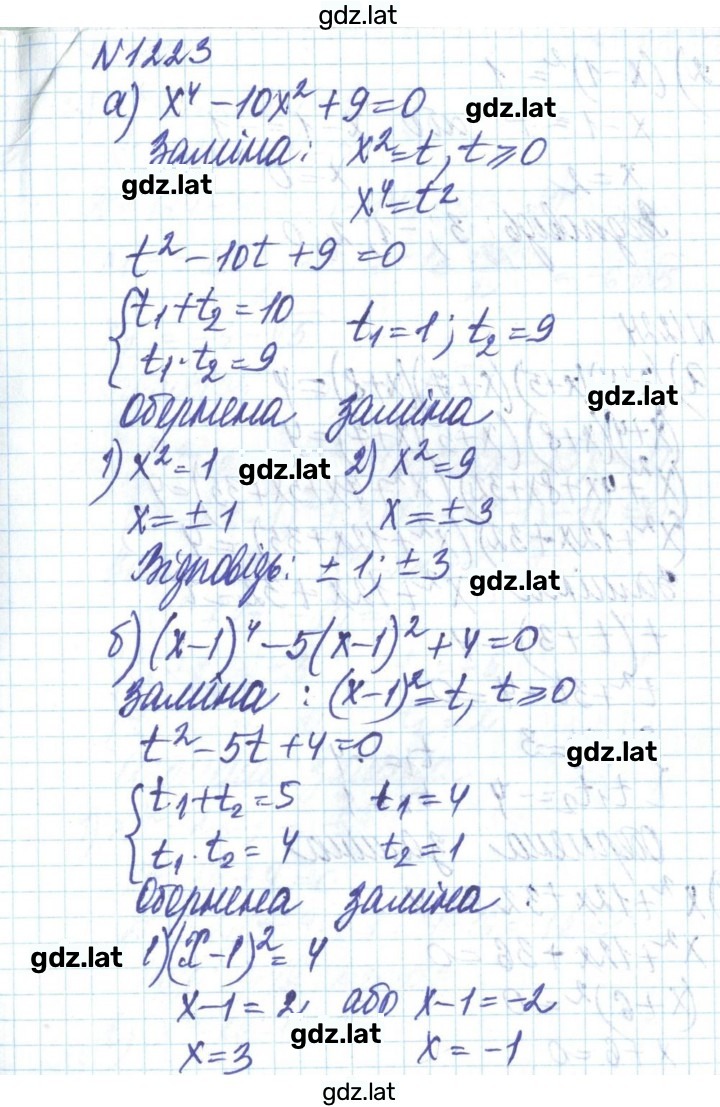 gdz.lat
N1223
а) x⁴ - 10x² + 9 = 0 gdz.lat
Заміна: x² = t, t ⩾ 0
gdz.lat
x⁴ = t²
t² - 10t + 9 = 0
{ t₁ + t₂ = 10
t₁ · t₂ = 9 t₁ = 1; t₂ = 9
Обернена заміна gdz.lat
1) x² = 1 gdz.lat 2) x² = 9
x = ± 1 x = ± 3
Відповідь: ± 1; ± 3 gdz.lat
б) (x-1)⁴ - 5(x-1)² + 4 = 0
Заміна: (x-1)² = t, t ⩾ 0
t² - 5t + 4 = 0 gdz.lat
{ t₁ + t₂ = 5 t₁ = 4
t₁ · t₂ = 4 t₂ = 1
Обернена заміна:
gdz.lat 1) (x-1)² = 4
x-1 = 2, або x-1 = -2
gdz.lat
x = 3 x = -1
gdz.lat